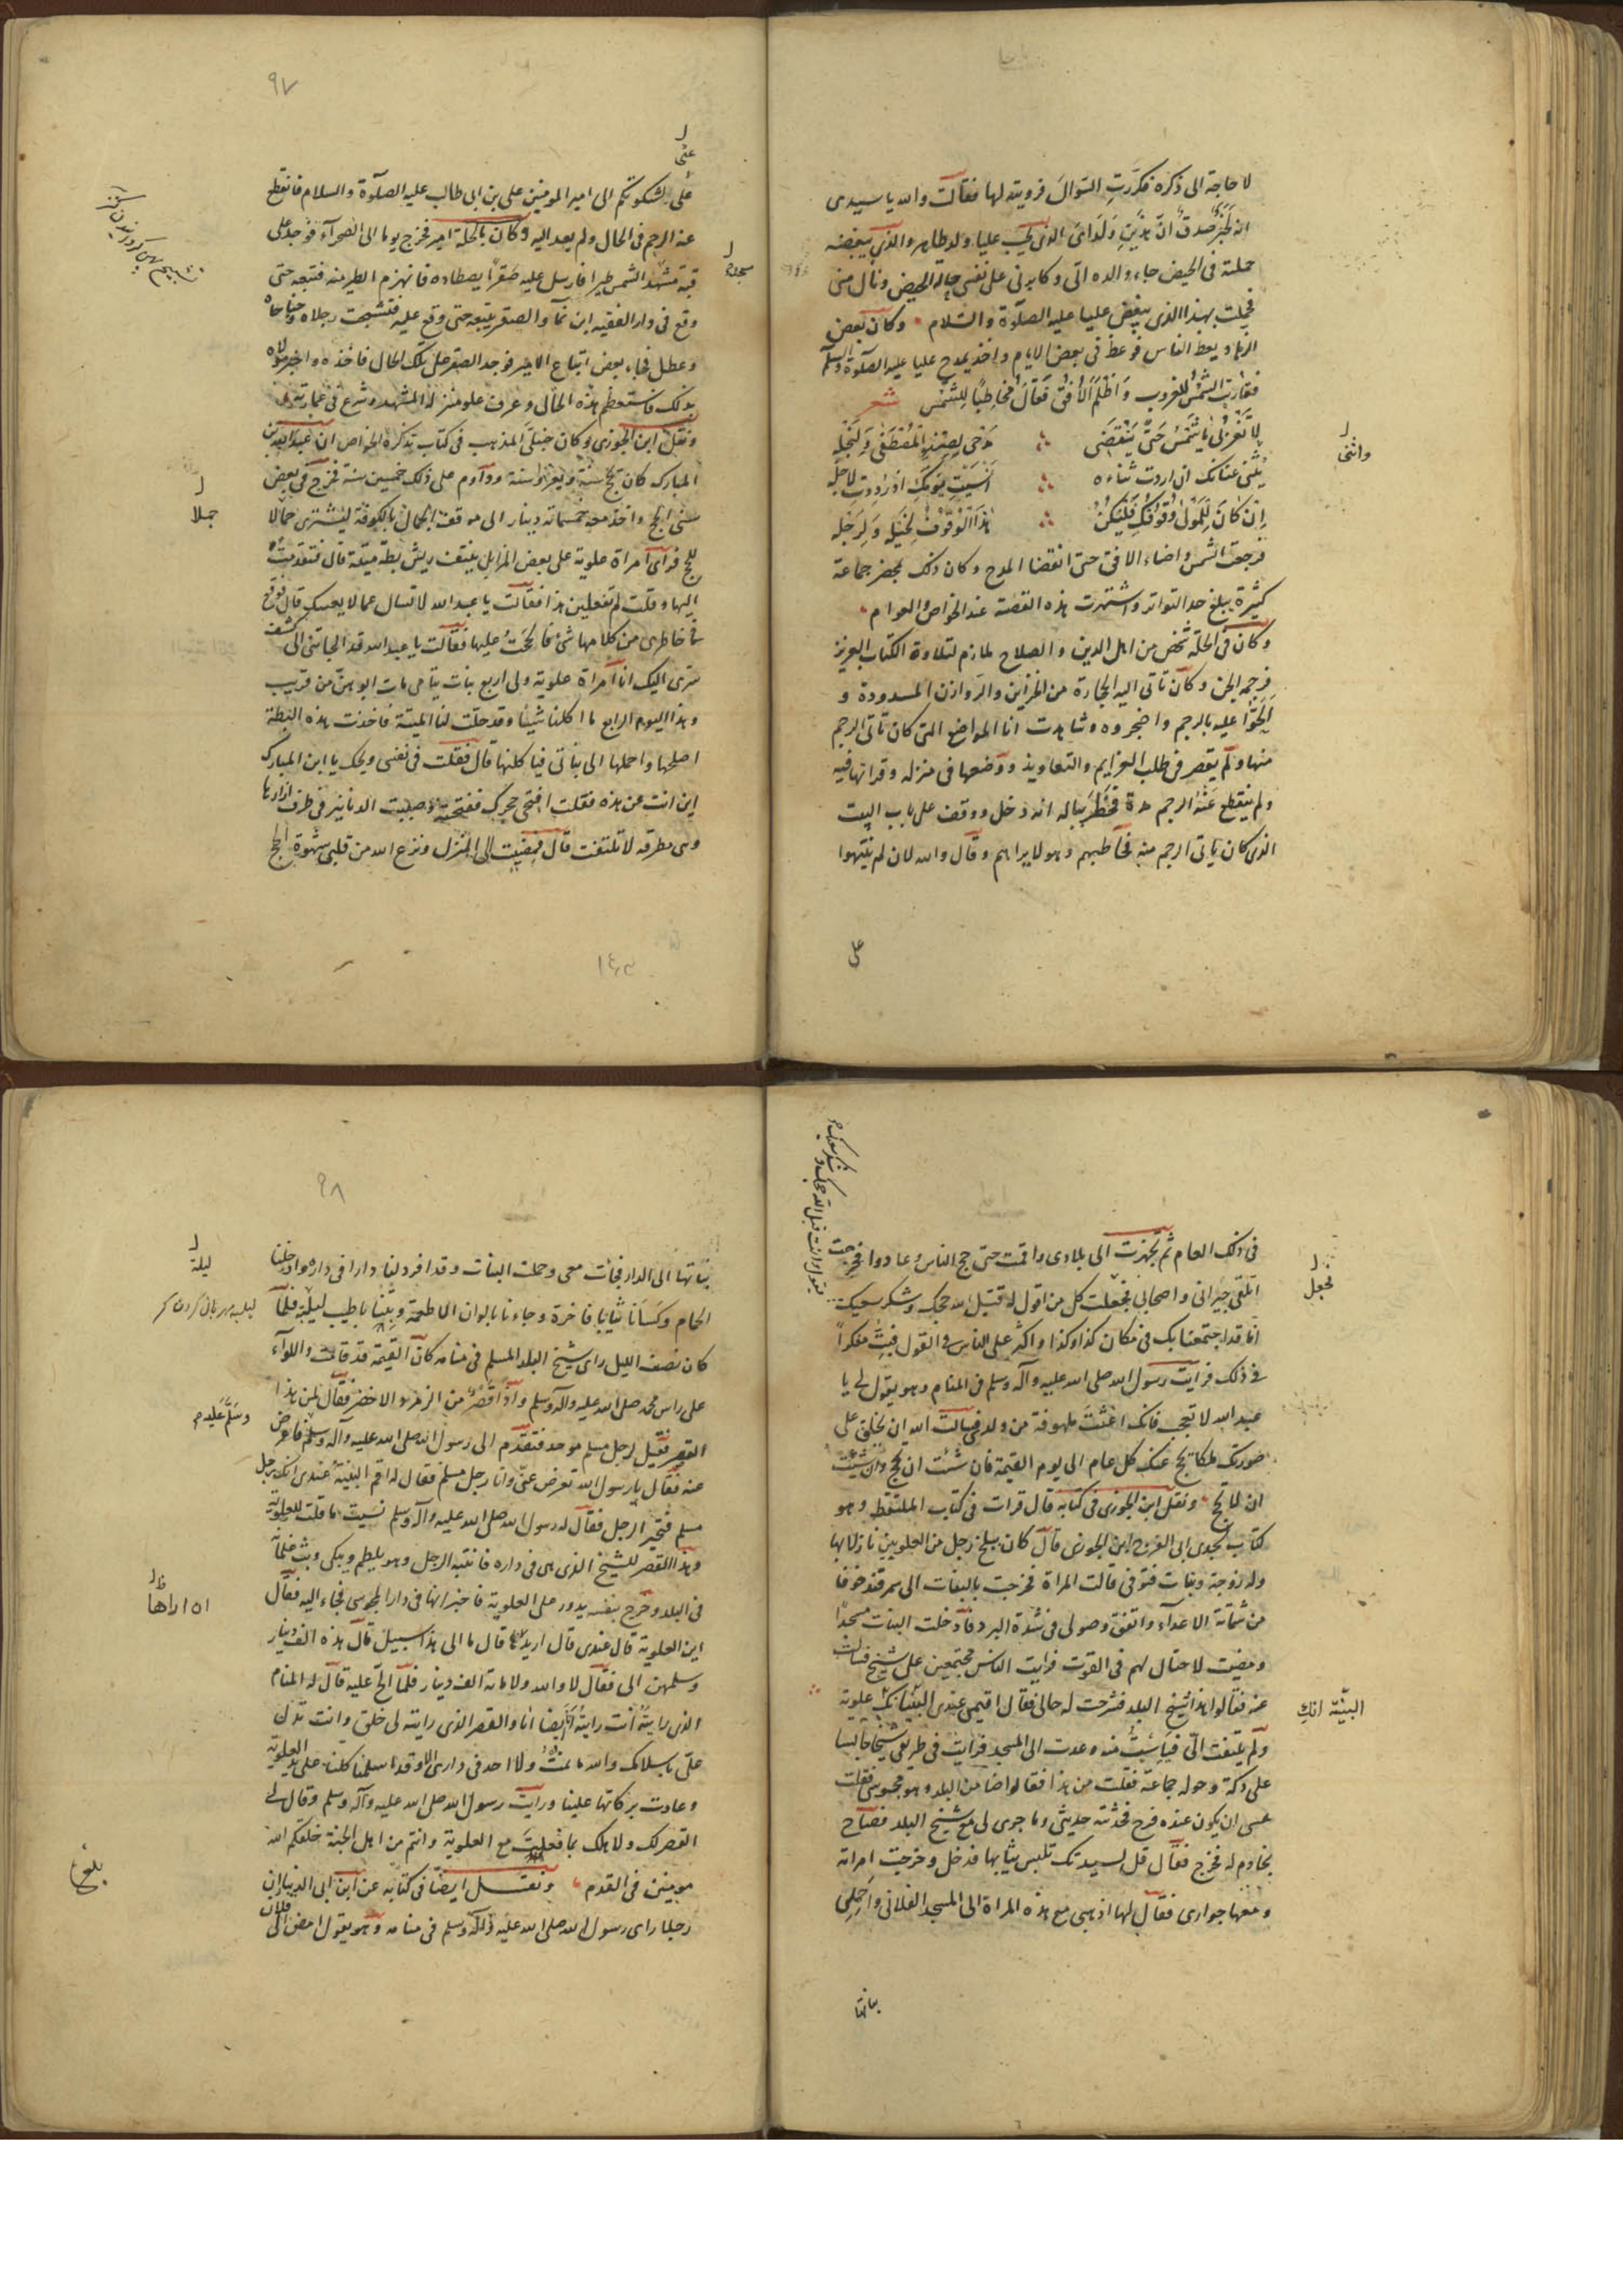 لا حاجة الى ذكره فكررت السؤال فرويته لها فقالت والله يا سيدى
انه لخبر صدق ان هذين ولداى الذى يحب عليا ولد طاهر والذى يبغضه
حملته فى الحيض جاء والده الى وكابرنى على نفسى حالة الحيض ونال منى
فحملت بهذا الذى يبغض عليا عليه الصلوة والسلام وكان بعض
الزهاد يعظ الناس فوعظ فى بعض الايام واخذ يمدح عليا عليه الصلوة والسلم
فقاربت الشمس للغروب واظلم الافق فقال مخاطبا للشمس شعر
لا تغربى يا شمس حتى ينقضى مدحى لصنو المصطفى ولنجله
واثنى
يثنى عنانك ان اردت ثناءه انسيت يومك اذ رددت لاجله
ان كان للمولى وقوفك فليكن هذا الوقوف لخيله ولرجله
فرجعت الشمس واضاء الافق حتى انقضا المدح وكان ذلك بمحضر جماعة
كثيرة يبلغ حد التواتر واشتهرت هذه القصة عند الخواص والعوام
وكان فى الحلة شخص من اهل الدين والصلاح ملازم لتلاوة الكتاب العزيز
فرجمه الجن وكان تاتى اليه الحجارة من الخزاين والروازن المسدودة و
الحوا عليه بالرجم واضجروه وشاهدت انا المواضع التى كان تاتى الرجم
منها ولم يقصر فى طلب العزايم والتعاويذ ووضعها فى منزله وقراتها فيه
ولم ينقطع عنه الرجم مدة فخطر بباله انه دخل ووقف على باب البيت
الذى كان ياتى الرجم منه فخاطبهم وهو لا يراهم وقال والله لان لم تنتهوا
على
٩٧
عنى
على لشكوتكم الى امير المومنين على بن ابى طالب عليه الصلوة والسلام فانقطع
عنه الرجم فى الحال ولم يعد اليه وكان بالحلة امير فخرج يوما الى الصحراء فوجد على
قبة مشهد الشمس طيرا فارسل عليه صقرا يصطاده فانهزم الطير منه فتبعه حتى
وقع فى دار الفقيه ابن نما والصقر يتبعه حتى وقع عليه فتشنجت رجلاه وجناحاه
وعطل فجاء بعض اتباع الامير فوجد الصقر على تلك الحال فاخذه واخبر مولاه
بذلك فاستعظم هذه الحال وعرف علو منزلة المشهد وشرع فى عمارته
ونقل ابن الجوزى وكان حنبلى المذهب فى كتاب تذكرة الخواص ان عبد الله بن
المبارك كان يحج سنة ويغزوا سنة وداوم على ذلك خمسين سنة فخرج فى بعض
سنى الحج واخذ معه خمسمائة دينار الى موقف الجمال بالكوفة ليشترى جمالا
جملا
للحج فراى امراة علوية على بعض المزابل ينتف ريش بطة ميتة قال فتقدمت
اليها وقلت لم تفعلين هذا فقالت يا عبد الله لا تسال عما لا يعنيك قال فوقع
فى خاطرى من كلامها شئ فالححت عليها فقالت يا عبد الله قد الجاتنى الى كشف
سرى اليك انا امراة علوية ولى اربع بنات يتامى مات ابوهن من قريب
وهذا اليوم الرابع ما اكلنا شيئا وقد حلت لنا الميتة فاخذت هذه البطة
اصلحها واحملها الى بناتى فياكلنها قال فقلت فى نفسى ويحك يا ابن المبارك
اين انت عن هذه فقلت افتحى حجرك ففتحته وصببت الدنانير فى طرف ازارها
وهى مطرقة لا تلتفت قال فمضيت الى المنزل ونزع الله من قلبى شهوة الحج
فى ذلك العام ثم تجهزت الى بلادى واقمت حتى حج الناس وعادوا فخرجت
اتلقى جيرانى واصحابى فجعلت كل من اقول له قبل الله حجك وشكر سعيك
لجعل
انا قد اجتمعنا بك فى مكان كذا وكذا واكثر على الناس فى القول فبت مفكرا
فى ذلك فرايت رسول الله صلى الله عليه وآله وسلم فى المنام وهو يقول لى يا
عبد الله لا تعجب فانك اغثت ملهوفة من ولدى فسالت الله ان يخلق على
صورتك ملكا يحج عنك كل عام الى يوم القيمة فان شئت ان تحج وان شئت
ان لا تحج ونقل ابن الجوزى فى كتابه قال قرات فى كتاب الملتقط وهو
كتاب لجدى ابى الفرج ابن الجوزى قال كان ببلخ رجل من العلويين نازلا بها
وله زوجة وبنات فتوفى قالت المراة فخرجت بالبنات الى سمرقند خوفا
من شماتة الاعداء واتفق وصولى فى شدة البرد فادخلت البنات مسجدا
ومضيت لاحتال لهم فى القوت فرايت الناس مجتمعين على شيخ فسالت
عنه فقالوا هذا شيخ البلد فشرحت له حالى فقال اقيمى عندى البينة انك علوية
البينة انك
ولم يلتفت الى فيئست منه وعدت الى المسجد فرايت فى طريقى شيخا جالسا
على دكة وحوله جماعة فقلت من هذا فقالوا ضامن البلد وهو مجوسى فقلت
عسى ان يكون عنده فرج فحدثته حديثى وما جرى لى مع شيخ البلد فصاح
بخادم له فخرج فقال قل لسيدتك تلبس ثيابها فدخل وخرجت امراته
ومعها جوارى فقال لها اذهبى مع هذه المراة الى المسجد الفلانى واحملى
بناتها
٩٨
بناتها الى الدار فجائت معى وحملت البنات وقد افرد لنا دارا فى داره وادخلنا
الحمام وكسانا ثيابا فاخرة وجاءنا بالوان الاطعمة وبتنا باطيب ليلة فلما
ليلة
كان نصف الليل راى شيخ البلد المسلم فى منامه كان القيمة قد قامت واللواء
على راس محمد صلى الله عليه وآله وسلم واذا قصر من الزمرد الاخضر فقال لمن هذا
القصر فقيل لرجل مسلم موحد فتقدم الى رسول الله صلى الله عليه وآله وسلم فاعرض
عنه فقال يا رسول الله تعرض عنى وانا رجل مسلم فقال له اقم البينة عندى انك رجل
مسلم فتحير الرجل فقال له رسول الله صلى الله عليه وآله وسلم نسيت ما قلت للعلوية
وهذا القصر للشيخ الذى هى فى داره فانتبه الرجل وهو يلطم ويبكى وبث غلمانه
فى البلد وخرج بنفسه يدور على العلوية فاخبر انها فى دار المجوسى فجاء اليه فقال
اين العلوية قال عندى قال اريدها قال ما الى هذا سبيل قال هذه الف دينار
وسلمهن الى فقال لا والله ولا مائة الف دينار فلما الح عليه قال له المنام
الذى رايته انت رايته ايضا انا والقصر الذى رايته لى خلق وانت تدل
على باسلامك والله ما نمت ولا احد فى دارى الا وقد اسلمنا كلنا على يد العلوية
وعادت بركاتها علينا ورايت رسول الله صلى الله عليه وآله وسلم وقال لى
القصر لك ولاهلك بما فعلت مع العلوية وانتم من اهل الجنة خلقكم الله
مومنين فى القدم ونقل ايضا فى كتابه عن ابن ابى الدنيا ان
رجلا راى رسول الله صلى الله عليه وآله وسلم فى منامه وهو يقول امض الى فلان